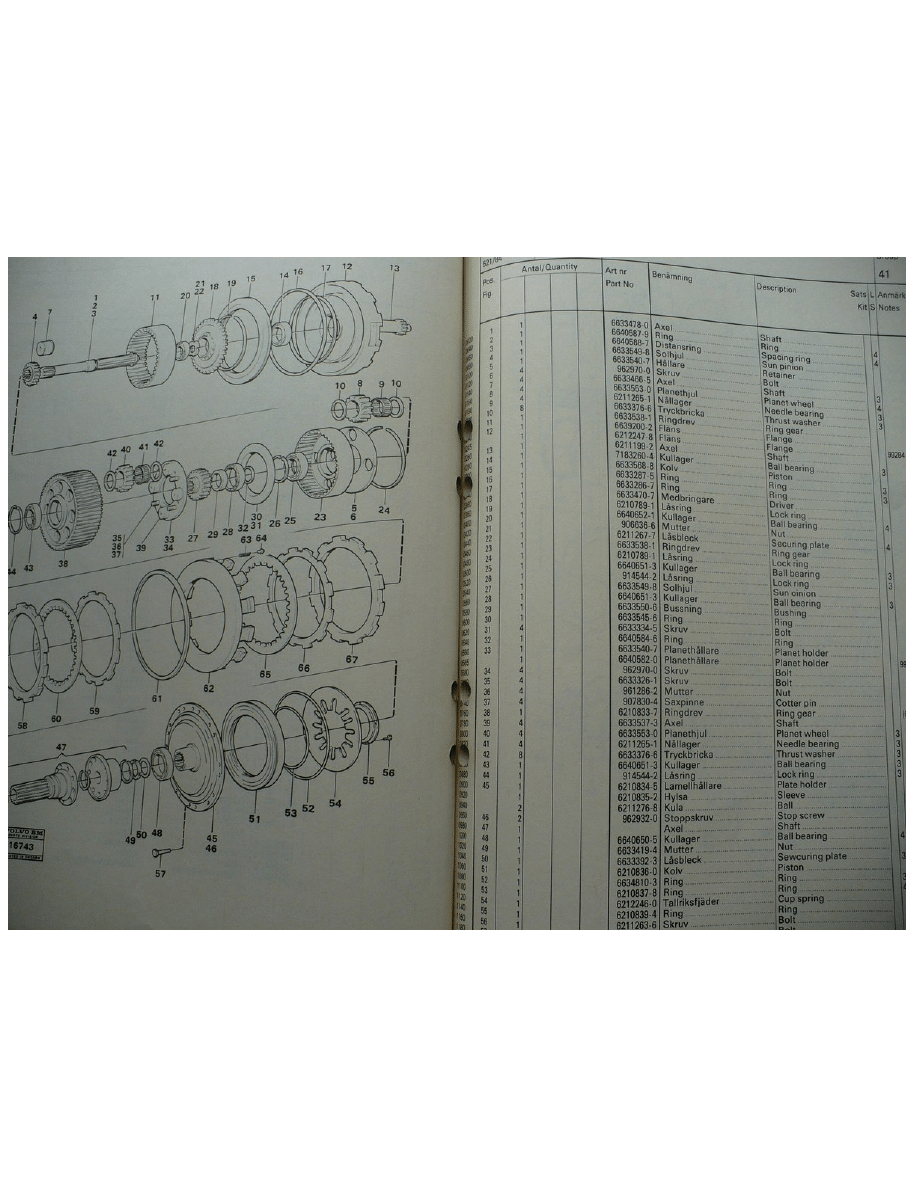 4 7 1 2 3 11 20 21 22 18 19 15 14 16 17 12 13
10 8 9 10
42 40 41 42
44 43 38 35 36 37 39 33 34 27 29 28 32 30 31 26 25 23 5 6 24
63 64
58 60 59 61 62 65 66 67
47
49 50 48 45 46 51 53 52 54 55 56
57
VOLVO BM
16743
521/94
Antal/Quantity
Art nr
Part No
Benämning
Description
Sats
Kit
L
S
Anmärk
Notes
41
Pos.
Fig
6633478-0 Axel Shaft
6640587-9 Ring Ring
6640588-7 Distansring Spacing ring
6633549-8 Solhjul Sun pinion 4
6633540-7 Hållare Retainer 4
962970-0 Skruv Bolt
6633486-5 Axel Shaft
6633553-0 Planethjul Planet wheel 3
6211265-1 Nållager Needle bearing 4
6633376-6 Tryckbricka Thrust washer 3
6633538-1 Ringdrev Ring gear 3
6639200-2 Fläns Flange
6212247-8 Fläns Flange
6211199-2 Axel Shaft 99284
7183260-4 Kullager Ball bearing
6633588-8 Kolv Piston
6633287-5 Ring Ring 3
6633286-7 Ring Ring 3
6633470-7 Medbringare Driver
6210789-1 Låsring Lock ring
6640652-1 Kullager Ball bearing 4
906636-6 Mutter Nut
6211267-7 Låsbleck Securing plate 4
6633538-1 Ringdrev Ring gear
6210789-1 Låsring Lock ring
6640651-3 Kullager Ball bearing 3
914544-2 Låsring Lock ring 3
6633549-8 Solhjul Sun pinion
6640651-3 Kullager Ball bearing 3
6633550-6 Bussning Bushing
30 1 6633545-6 Ring Ring
31 4 6633334-5 Skruv Bolt
32 1 6640584-6 Ring Ring
33 1 6633540-7 Planethållare Planet holder
1 6640582-0 Planethållare Planet holder
34 4 962970-0 Skruv Bolt
35 4 6633326-1 Skruv Bolt
36 4 961286-2 Mutter Nut
37 4 907830-4 Saxpinne Cotter pin
38 1 6210833-7 Ringdrev Ring gear
39 4 6633537-3 Axel Shaft
40 4 6633553-0 Planethjul Planet wheel 3
41 4 6211265-1 Nållager Needle bearing 3
42 8 6633376-6 Tryckbricka Thrust washer 3
43 1 6640651-3 Kullager Ball bearing 3
44 1 914544-2 Låsring Lock ring 3
45 1 6210834-5 Lamellhållare Plate holder
1 6210835-2 Hylsa Sleeve
2 6211276-8 Kula Ball
46 2 962932-0 Stoppskruv Stop screw
47 1 Axel Shaft
48 1 6640650-5 Kullager Ball bearing 4
49 1 6633419-4 Mutter Nut
50 1 6633392-3 Låsbleck Sewcuring plate 3
51 1 6210836-0 Kolv Piston
52 1 6634810-3 Ring Ring 3
53 1 6210837-8 Ring Ring 4
54 1 6212246-0 Tallriksfjäder Cup spring
55 1 6210839-4 Ring Ring
56 1 6211263-6 Skruv Bolt